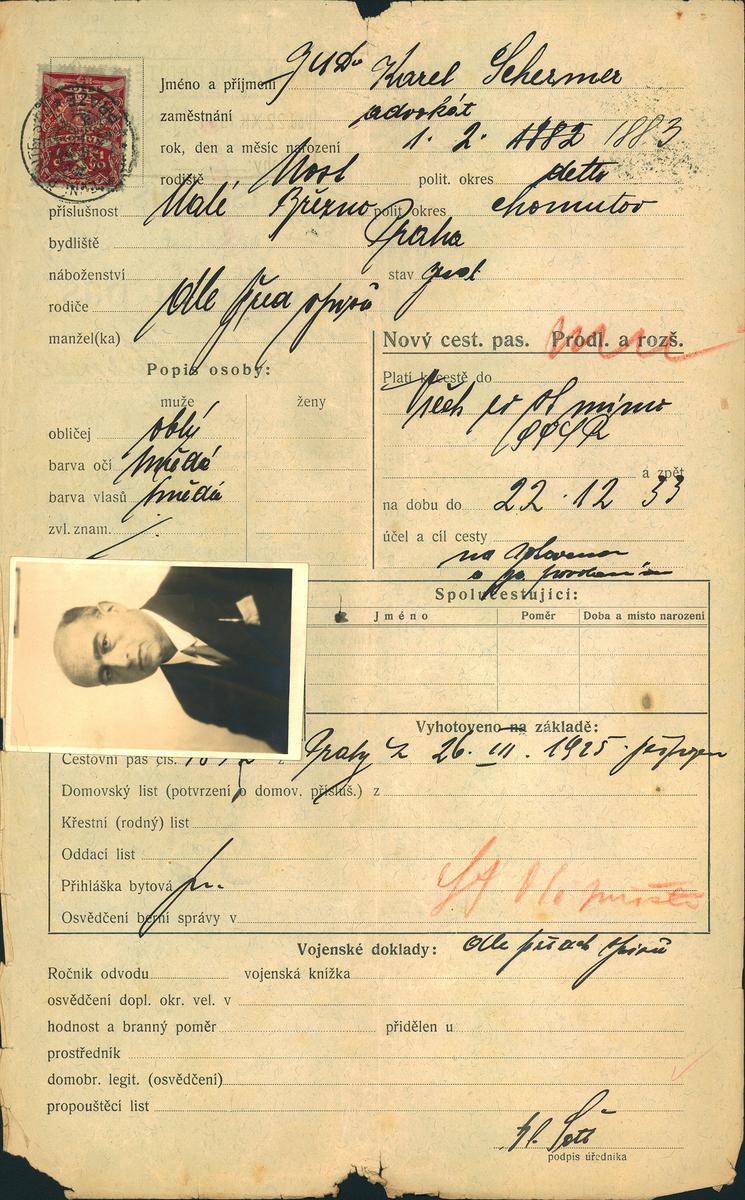 Jméno a příjmení JUDr Karel Schermer
zaměstnání advokát
rok, den a měsíc narození 1. 2. 1882 1883
rodiště Most polit. okres detto
příslušnost Malé Březno polit. okres Chomutov
bydliště Praha
náboženství stav
rodiče dle spisů
manžel(ka)
Nový cest. pas. Prodl. a rozš.
Popis osoby:
Platí k cestě do
muže ženy
všech mimo
obličej oblý
SSSR
barva očí hnědá
a zpět
barva vlasů hnědá
na dobu do 22. 12 33
zvl. znam.
účel a cíl cesty
na
a
Spolucestující:
Jméno Poměr Doba a místo narození
Vyhotoveno na základě:
Cestovní pas čís. z Prahy z 26. III. 1925
Domovský list (potvrzení o domov. přísluš.) z
Křestní (rodný) list
Oddací list
Přihláška bytová
Osvědčení berní správy v
Vojenské doklady: dle spisů
Ročník odvodu vojenská knížka
osvědčení dopl. okr. vel. v
hodnost a branný poměr přidělen u
prostředník
domobr. legit. (osvědčení)
propouštěcí list
podpis úředníka